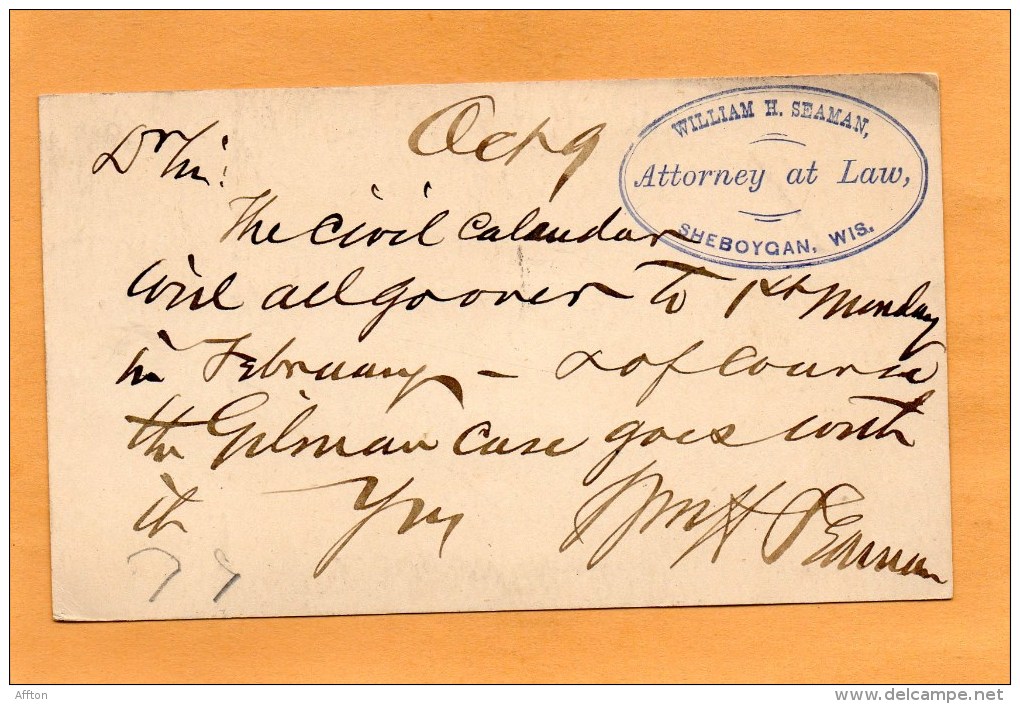 WILLIAM H. SEAMAN,
Attorney at Law,
SHEBOYGAN, WIS.
Oct 9
Dr Sir:
The Civil Calandar
will all go over to 1st Monday
in February – & of course
the Gilman case goes with
it Yrs Wm H Seaman
79
Affton
delcampe.net